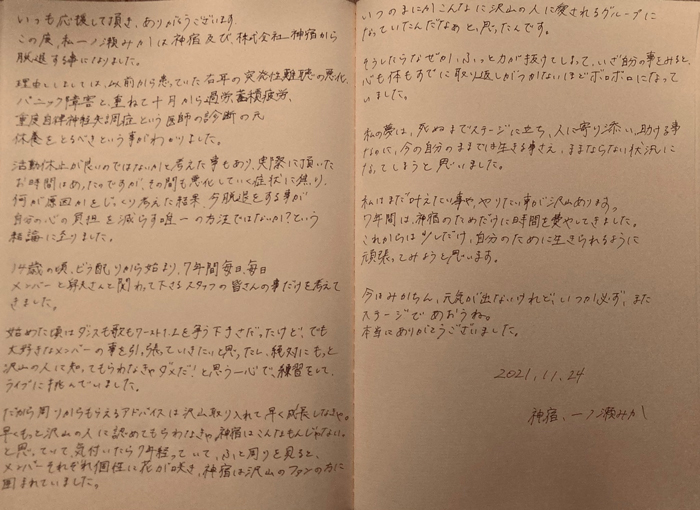 いつも応援して頂き、ありがとうございます。
この度、私一ノ瀬みかは神宿及び、株式会社神宿から
脱退する事になりました。
理由としましては、以前から患っていた右耳の突発性難聴の悪化、
パニック障害と、重ねて十月から過労、蓄積疲労、
重度自律神経失調症という医師の診断の元
休養をとるべきという事がわかりました。
活動休止が良いのではないかと考えた事もあり、実際に頂いた
お時間はあったのですが、その間も悪化していく症状に焦り、
何が原因かをじっくり考えた結果、今脱退をする事が
自分の心の負担を減らす唯一の方法ではないか?という
結論に至りました。
14歳の頃、どう配りから始まり、7年間毎日、毎日
メンバーと羽夫さんと関わって下さるスタッフの皆さんの事だけを考えて
きました。
始めた頃はダンスも歌もワースト1、2を争う下手さだったけど、でも
大好きなメンバーの事を引っ張っていきたいと思ったし、絶対にもっと
沢山の人に知ってもらわなきゃダメだ!と思う一心で、練習をして、
ライブに挑んでいました。
だから周りからもらえるアドバイスは沢山取り入れて早く成長しなきゃ。
早くもっと沢山の人に認めてもらわなきゃ、神宿はこんなもんじゃない。
と思っていて、気付いたら7年経っていて、ふと周りを見ると、
メンバーそれぞれ個性に花が咲き、神宿は沢山のファンの方に
囲まれていました。
いつのまにかこんなに沢山の人に愛されるグループに
なっていたんだなぁ、と思ったんです。
そうしたらなぜか、ふっと力が抜けてしまって、いざ自分の事をみると、
心も体もすでに取り返しがつかないほどボロボロになって
いました。
私の夢は、死ぬまでステージに立ち、人に寄り添い、助ける事
なのに、今の自分のままでは生きる事さえ、ままならない状況に
なってしまうと思いました。
私はまだ叶えたい事や、やりたい事が沢山あります。
7年間は、神宿のためだけに時間を費やしてきました。
これからは少しだけ、自分のために生きられるように
頑張ってみようと思います。
今はみかちん、元気が出ないけれど、いつか必ず、また
ステージであおうね。
本当にありがとうございました。
2021.11.24
神宿、一ノ瀬みか